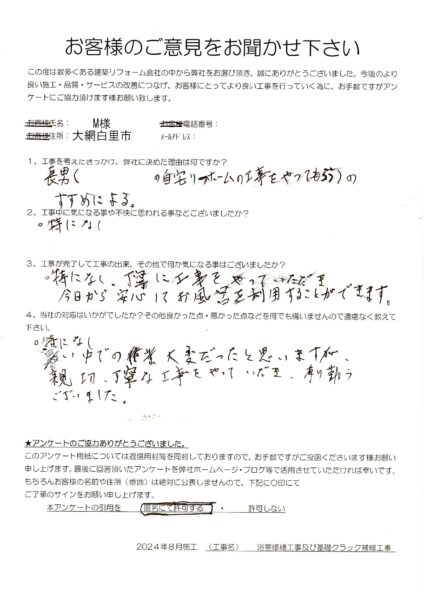 お客様のご意見をお聞かせ下さい
この度は数多くある建築リフォーム会社の中から弊社をお選び頂き、誠にありがとうございました。今後のより
良い施工・品質・サービスの改善につなげ、お客様にとってより良い工事を行っていく為に、お手数ですがアン
ケートにご協力頂けます様お願い致します。
お客様氏名: M様 お客様電話番号:
お客様住所: 大網白里市 メールアドレス:
1、工事を考えたきっかけ、弊社に決めた理由は何ですか?
長男( の自宅リホームの工事をやってもらう)の
すすめによる。
2、工事中に気になる事や不快に思われる事などございましたか?
○特になし
3、工事が完了して工事の出来、その他で何か気になる事はございましたか?
○特になし、丁寧に工事をやっていただき
今日から安心してお風呂を利用することができます。
4、当社の対応はいかがでしたか?その他良かった点・悪かった点などを何でも構いませんので遠慮なく教えて
下さい。
○特になし
い中での作業大変だったと思いますが、
親切、丁寧な工事をやっていただき、有り難う
ございました。
★アンケートのご協力ありがとうございました。
このアンケート用紙については返信用封筒を同封しておりますので、お手数ですがご投函くださいます様お願い
申し上げます。最後に回答頂いたアンケートを弊社ホームページ・ブログ等で活用させていただければ幸いです。
もちろんお客様の名前や住所(番地)は絶対に公表しませんので、下記に〇印にて
ご了承のサインをお願い申し上げます。
本アンケートの引用を 匿名にて許可する ・ 許可しない
2024年8月施工 (工事名) 浴室修繕工事及び基礎クラック補修工事